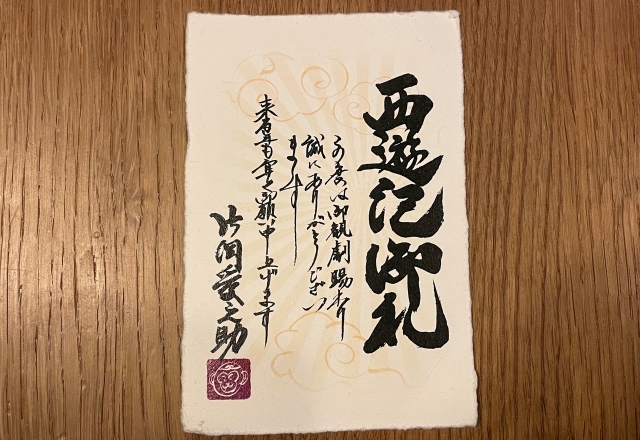 西遊記御礼
この度は御観劇賜わり
誠にありがとうござい
ます
御願い申し上げます
片岡愛之助